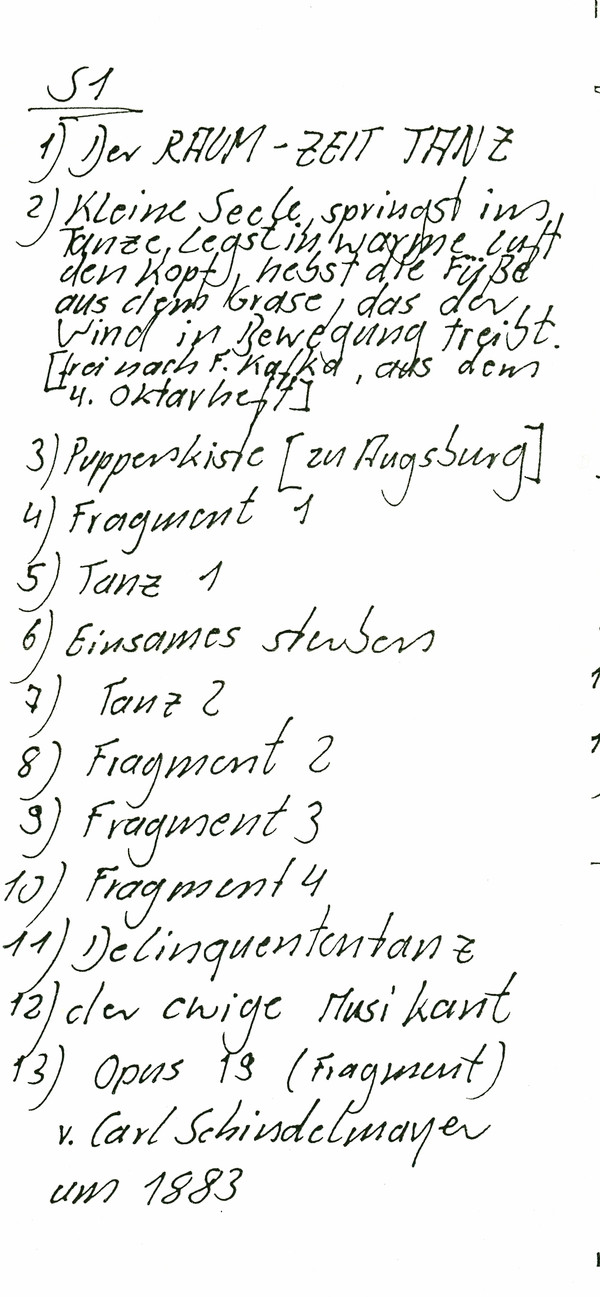 S1
1) Der RAUM-ZEIT TANZ
2) Kleine Seele, springst im
Tanze, legst in warme Luft
den Kopf, hebst die Füße
aus dem Grase, das der
Wind in Bewegung treibt.
[frei nach F. Kafka, aus dem
4. Oktavheft]
3) Puppenskiste [zu Augsburg]
4) Fragment 1
5) Tanz 1
6) Einsames sterben
7) Tanz 2
8) Fragment 2
9) Fragment 3
10) Fragment 4
11) Delinquententanz
12) der ewige Musikant
13) Opus 19 (Fragment)
v. Carl Schindelmayer
um 1883